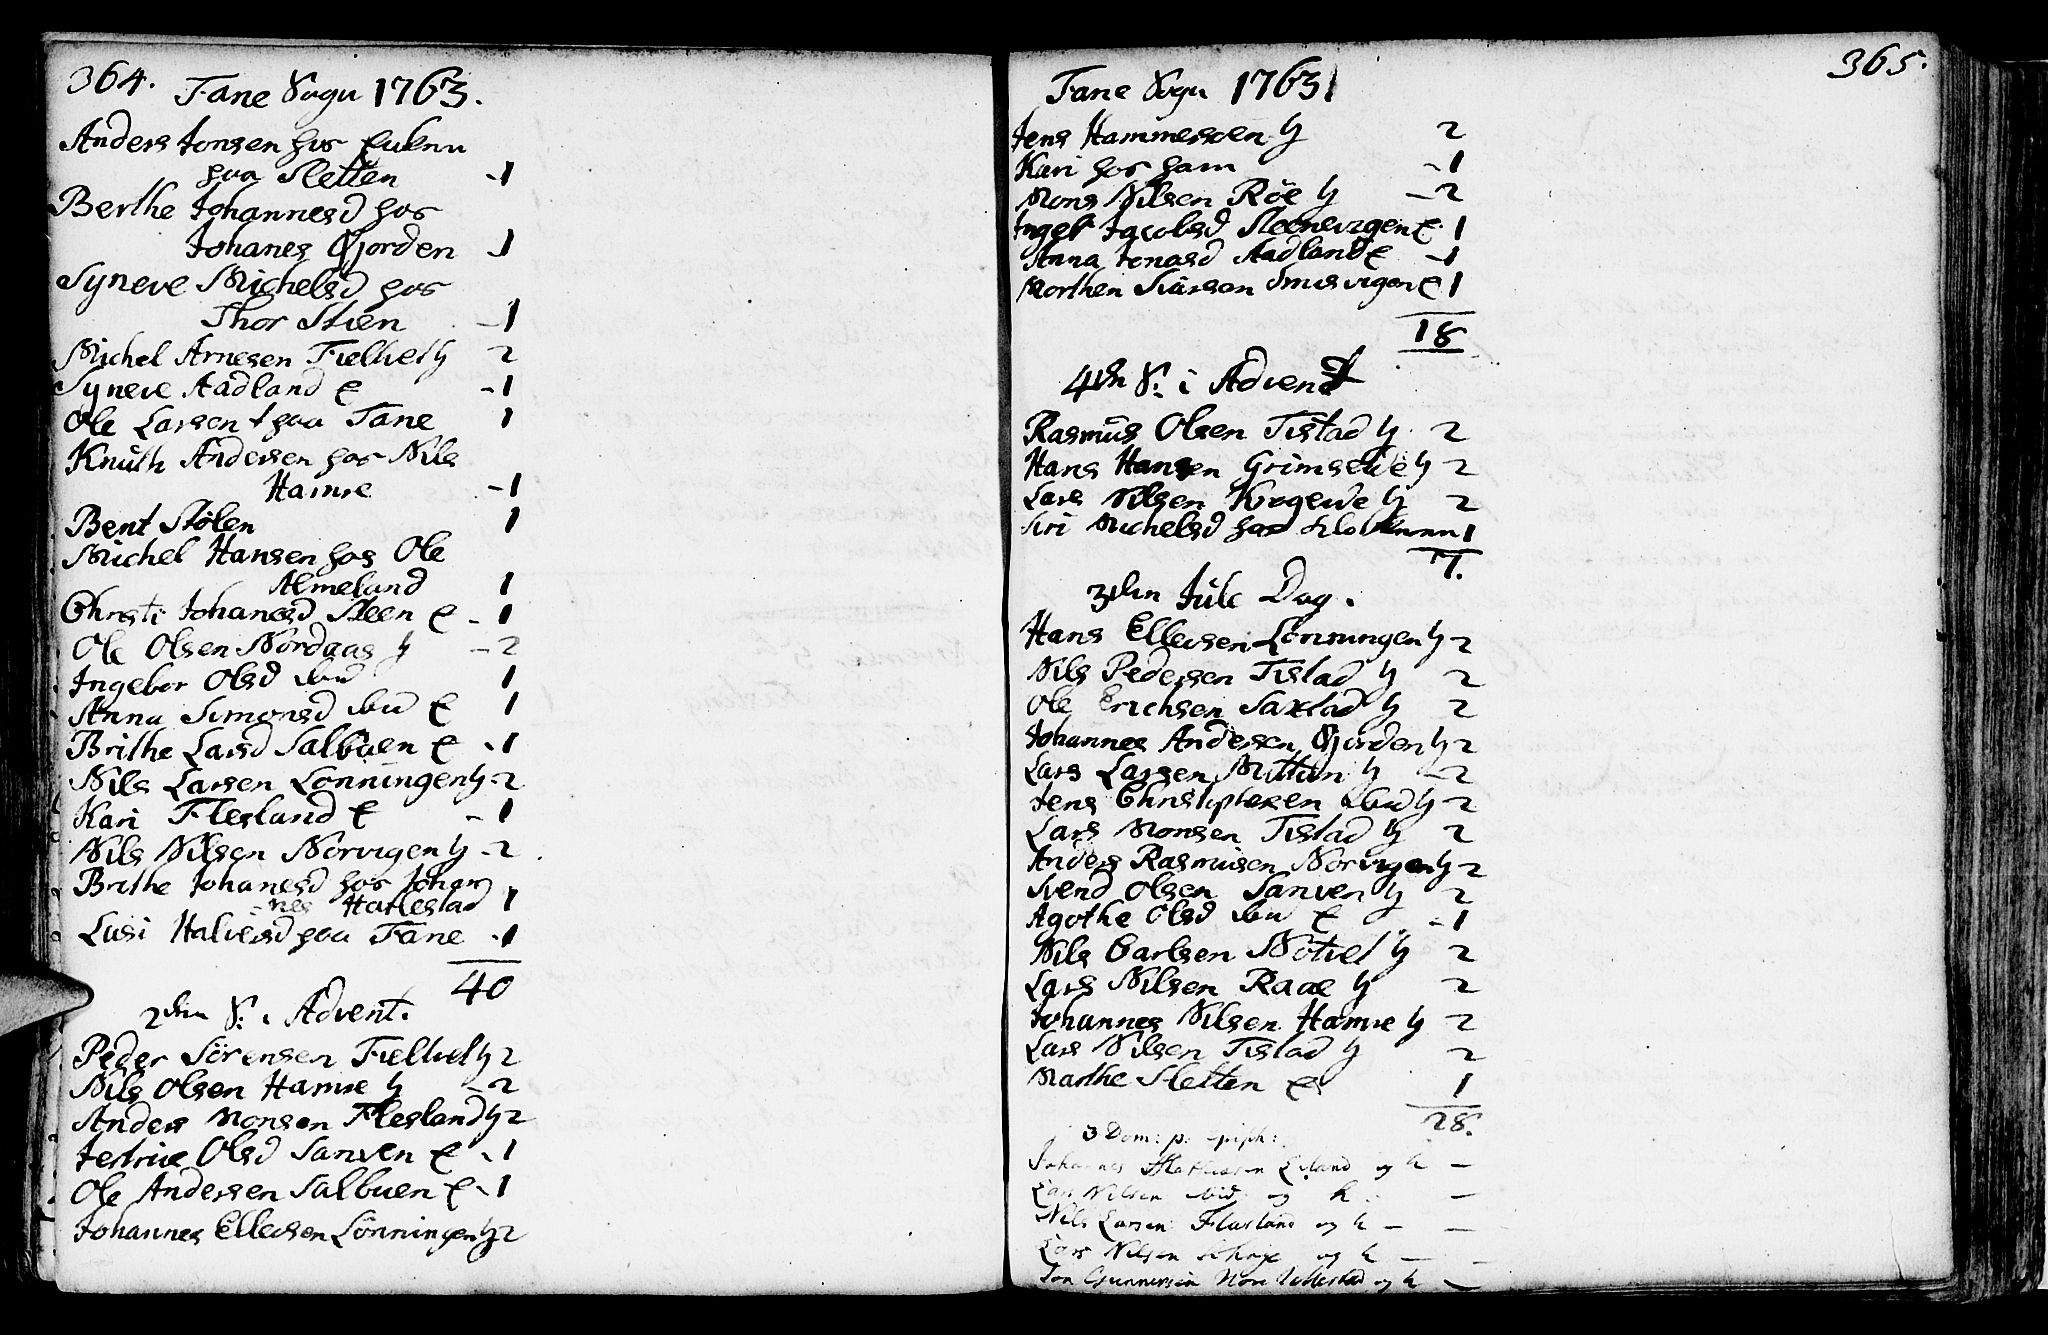 364.
Fane Sogn 1763.
Anders Jonsen hos Enken
paa Sletten - 1
Berthe Johannesd hos
Johanes Gjorden - 1
Syneve Michelsd hos
Thor Stien - 1
Michel Arnesen Fielved H 2
Syneve Aadland E - 1
Ole Larsen paa Fane 1
Knuth Andersen hos Nils
Hamre - 1
Bent Stölen 1
Michel Hansen hos Ole
Almeland 1
Christi Johanesd Steen E - 1
Ole Olsen Nordaas H - 2
Ingebor Olsd ibid 1
Anna Simonsd ibid E 1
Brithe Larsd Salbuen E - 1
Nils Larsen Lönningen H - 2
Kari Flesland E - 1
Nils Nilsen Norvigen H - 2
Brithe Johanesd hos Johan
nes Harlestad 1
Lusi Halversd paa Fane - 1
40
2den S. i Advent.
Peder Sörensen Fielved H 2
Nils Olsen Hamre H - 2
Anders Monsen Flesland H 2
Jertrue Olsd Sanven E - 1
Ole Andersen Salbuen E - 1
Johannes Ellevsen Lönningen H 2
365.
Fane Sogn 1763
Jens Hammersen H 2
Kari hos ham - 1
Mons Nilsen Röe H - 2
Ingeb Jacobsd Steenevigen E 1
Anna Jonasd Aadland E - 1
Morthen Sivirsen Smusvigen E 1
18
4de S. i Advent
Rasmus Olsen Tistad H 2
Hans Hansen Grimseide H 2
Lars Nilsen Krogeide H 2
Siri Michelsd hos Klokkeren 1
7.
3den Jule Dag.
Hans Ellevsen Lönningen H 2
Nils Pedersen Tistad H 2
Ole Erichsen Saxtad H 2
Johannes Andersen Gjorden H 2
Lars Larsen Mittun H - 2
Jens Christophersen ibid H 2
Lars Monsen Tistad H 2
Anders Rasmusen Norvigen H 2
Svend Olsen Sanven H 2
Agothe Olsd ibid E - 1
Nils Carlsen Nötvet H 2
Lars Nilsen Raae H 2
Johannes Nilsen Hamre H 2
Lars Nilsen Tistad H 2
Marthe Sletten E 1
28.
3 Dom: p. Epiph:
Johannes Mathiasen Eiland og h -
Lars Nilsen ibid: og h. -
Nils Larsen Flesland og h - -
Lars Nilsen og h -
Jon Gunnersen Nore Titlestad og h -